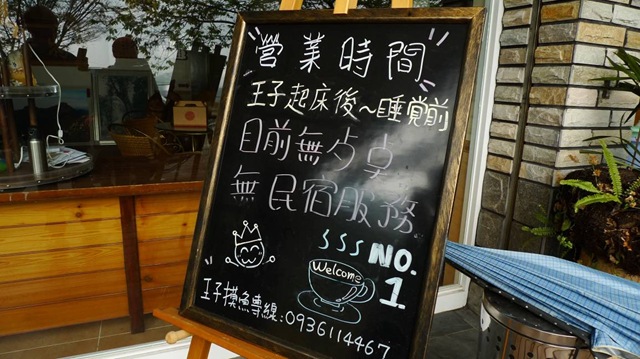 營業時間
王子起床後~睡覺前
目前無夕桌
無民宿服務
NO.
1
Welcome
王子摸魚專線:0936114467